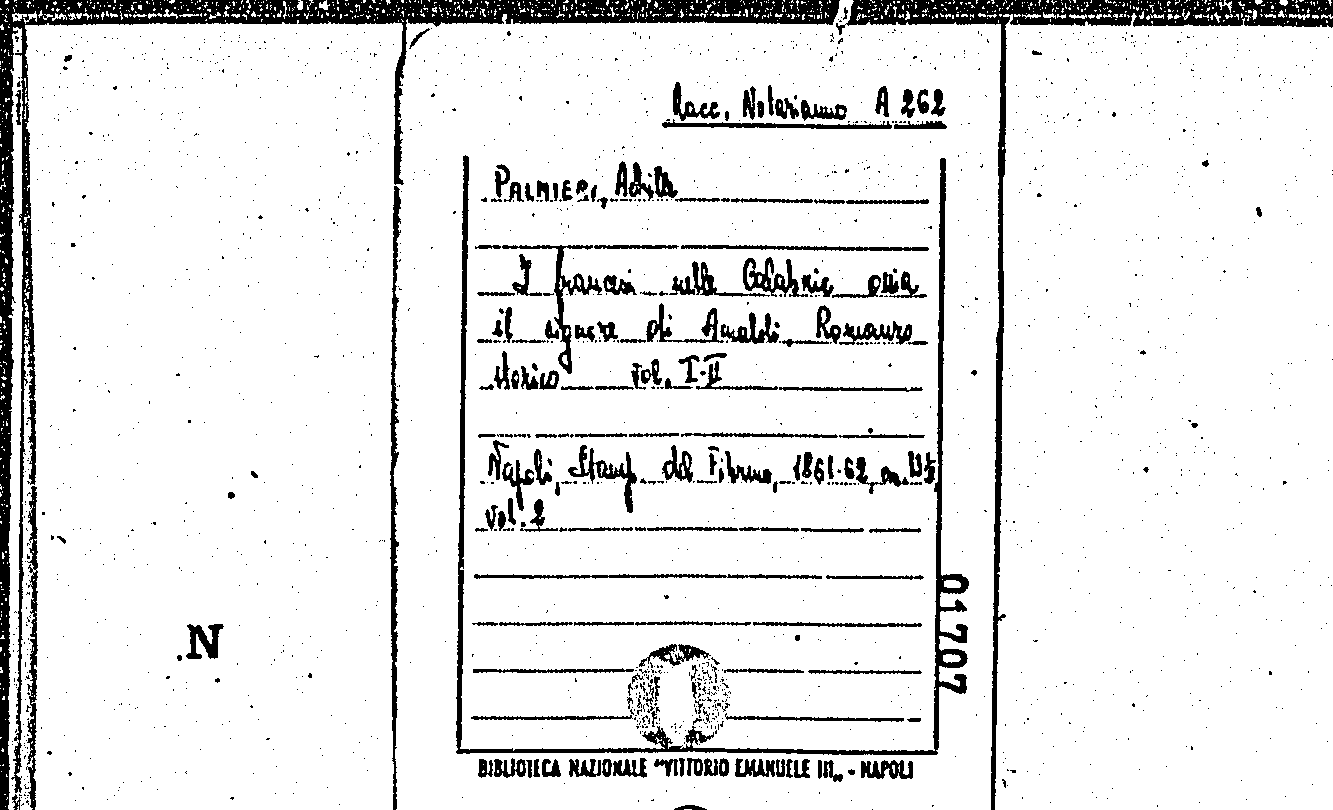 Racc. Notarianno A 262
PALMIERI, Achille
I francesi nelle Calabrie ossia
il signore di Amaldi. Romanzo
storico Vol. I-II
Napoli, Stamp. del Fibreno, 1861-62,
vol. 2
01707
N
BIBLIOTECA NAZIONALE "VITTORIO EMANUELE III„ - NAPOLI